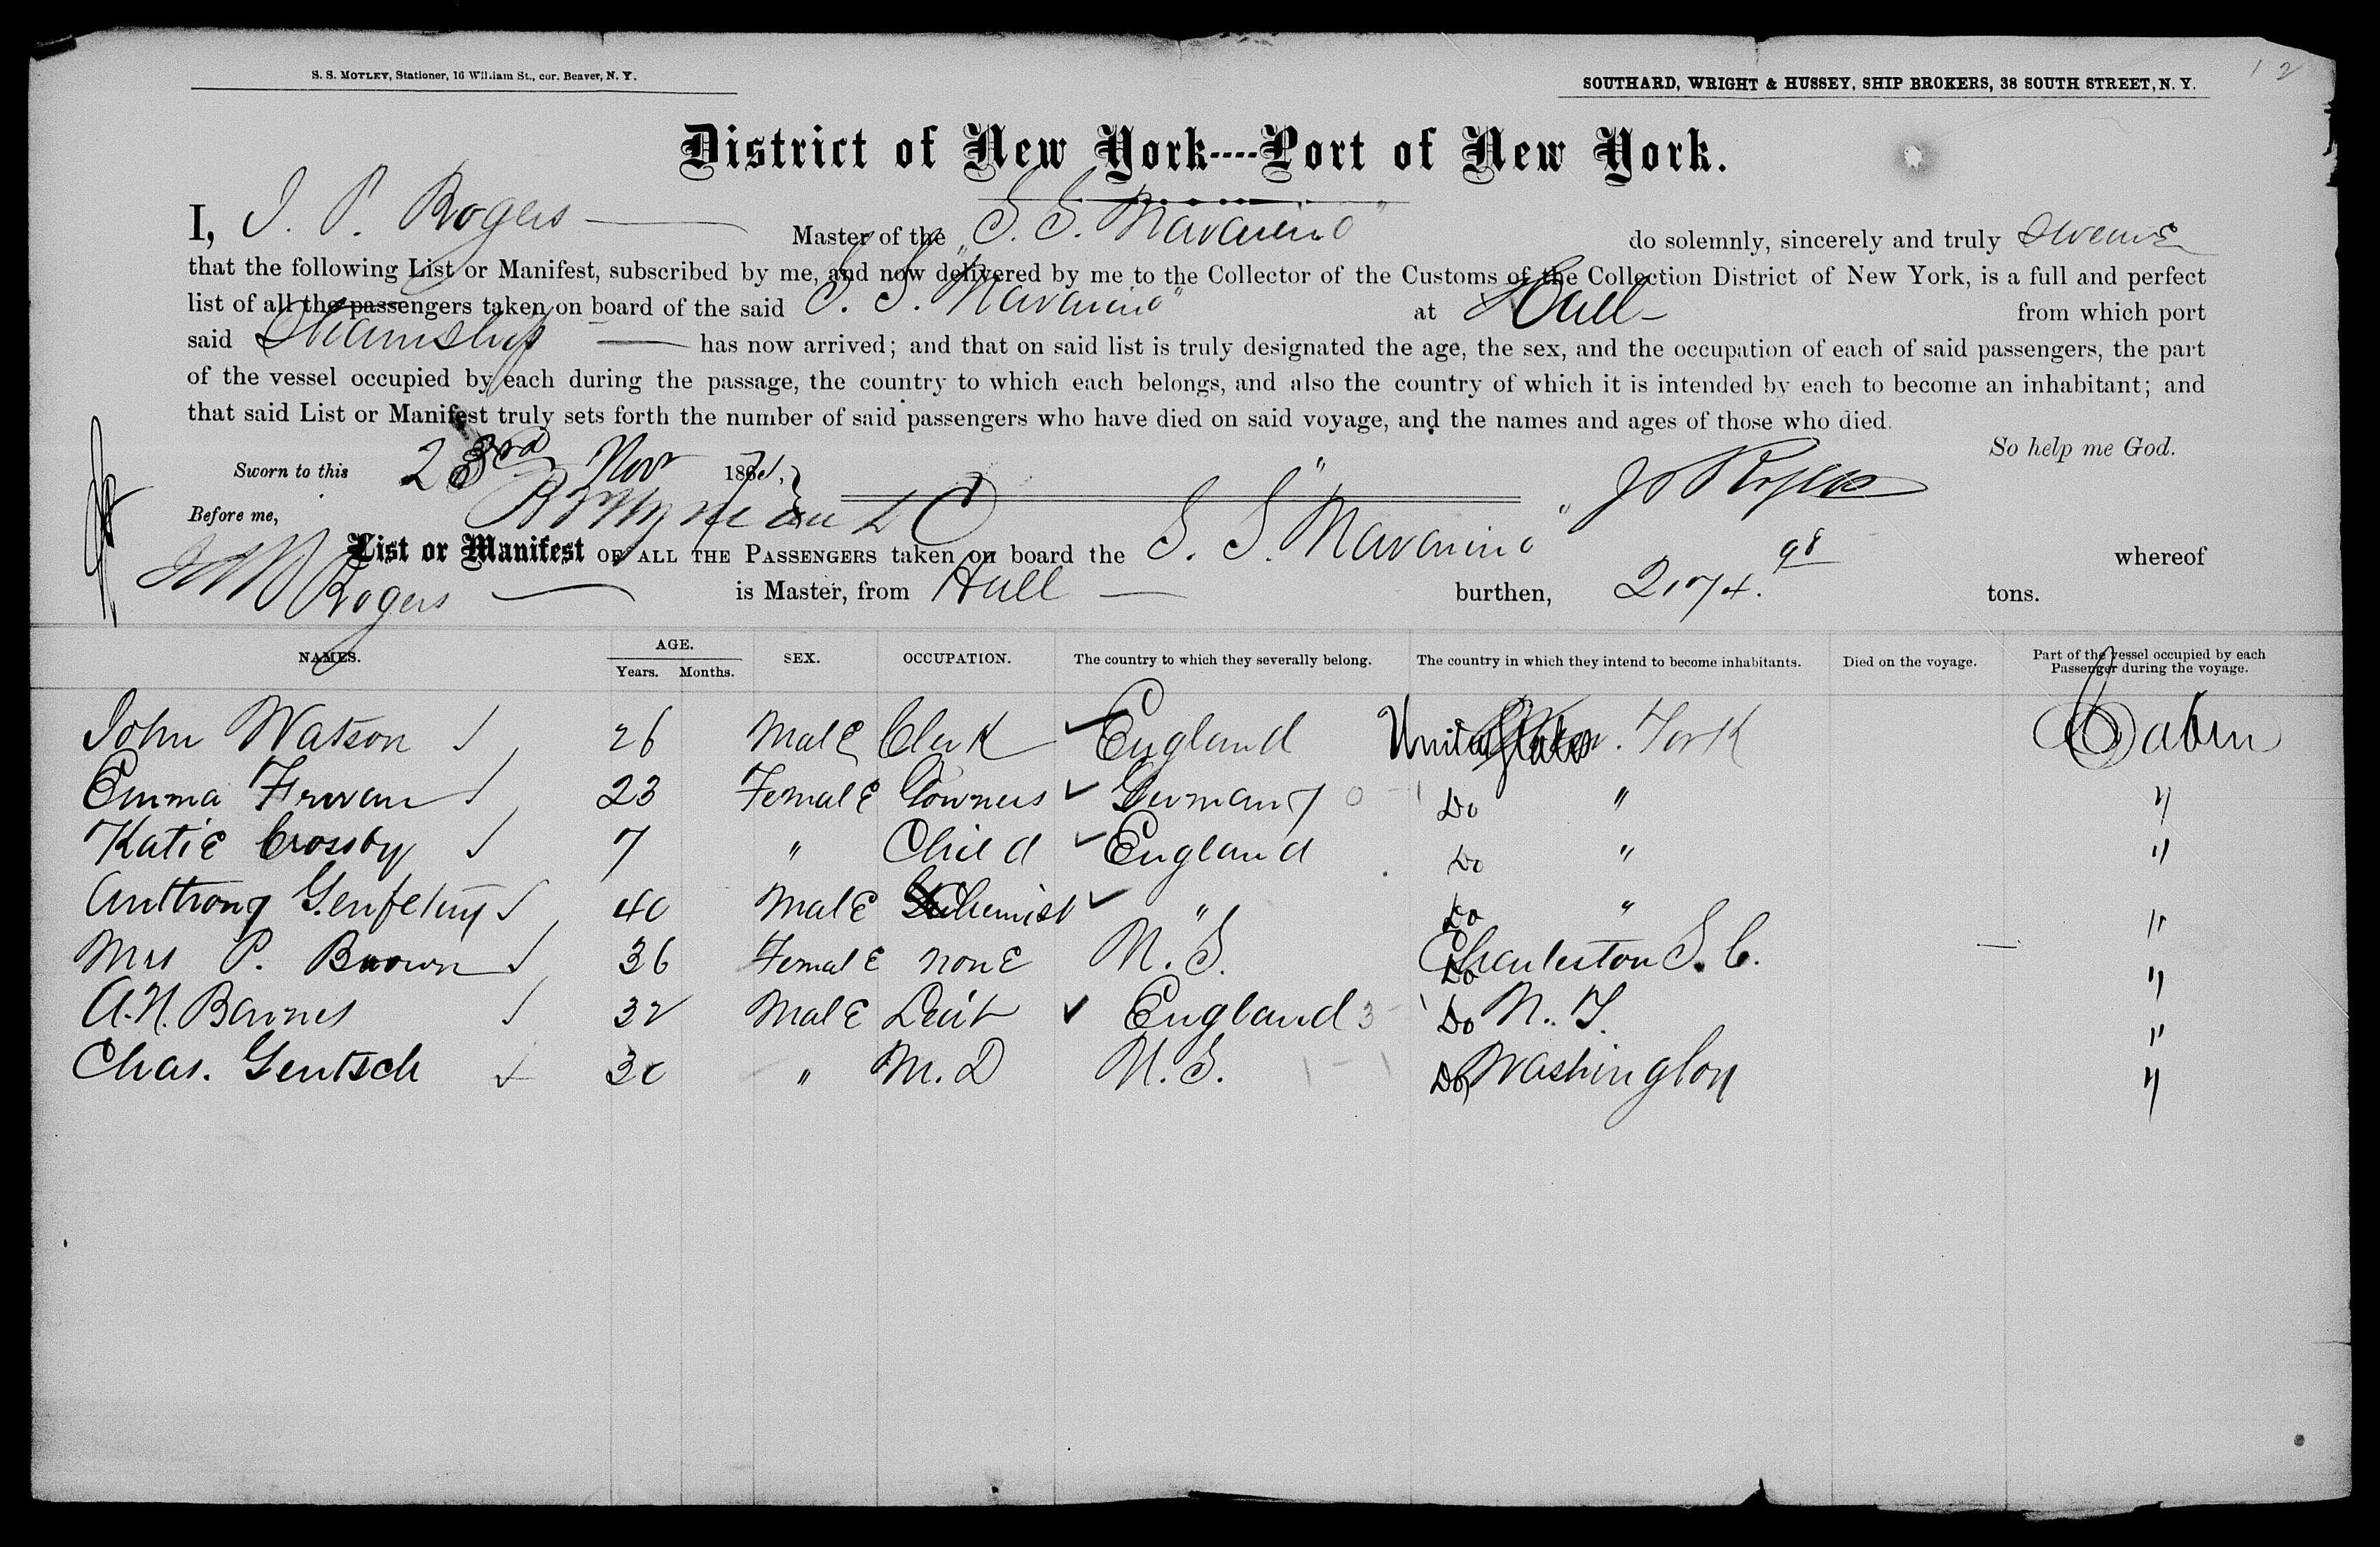 S. S. MOTLEY, Stationer, 16 William St., cor. Beaver, N. Y.
SOUTHARD, WRIGHT & HUSSEY, SHIP BROKERS, 38 SOUTH STREET, N. Y.
12
District of New York----Port of New York.
I, J. P. Rogers Master of the "S. S. Navarino" do solemnly, sincerely and truly swear
that the following List or Manifest, subscribed by me, and now delivered by me to the Collector of the Customs of the Collection District of New York, is a full and perfect
list of all the passengers taken on board of the said S. S. "Navarino" at Hull from which port
said Steamship has now arrived; and that on said list is truly designated the age, the sex, and the occupation of each of said passengers, the part
of the vessel occupied by each during the passage, the country to which each belongs, and also the country of which it is intended by each to become an inhabitant; and
that said List or Manifest truly sets forth the number of said passengers who have died on said voyage, and the names and ages of those who died.
So help me God.
Sworn to this 23rd Nov 187
Before me,
Rogers
List or Manifest OF ALL THE PASSENGERS taken on board the S. S. "Navarino" whereof
Rogers is Master, from Hull burthen, 2174.98 tons.
NAMES. AGE. Years. Months. SEX. OCCUPATION. The country to which they severally belong. The country in which they intend to become inhabitants. Died on the voyage. Part of the vessel occupied by each Passenger during the voyage.
John Watson 26 Male Clerk England United States York Cabin
Emma 23 Female Germany Do " "
Katie Crossby 7 " Child England Do " "
Anthony 40 Male Chemist " Do " "
Mrs P. Brown 36 Female None U.S. Do Charleston S. C. "
A. N. Barnes 32 Male Leut England 3 Do N. Y. "
Chas. Gentsch 30 " M. D U.S. 1 - 1 Do Washington "